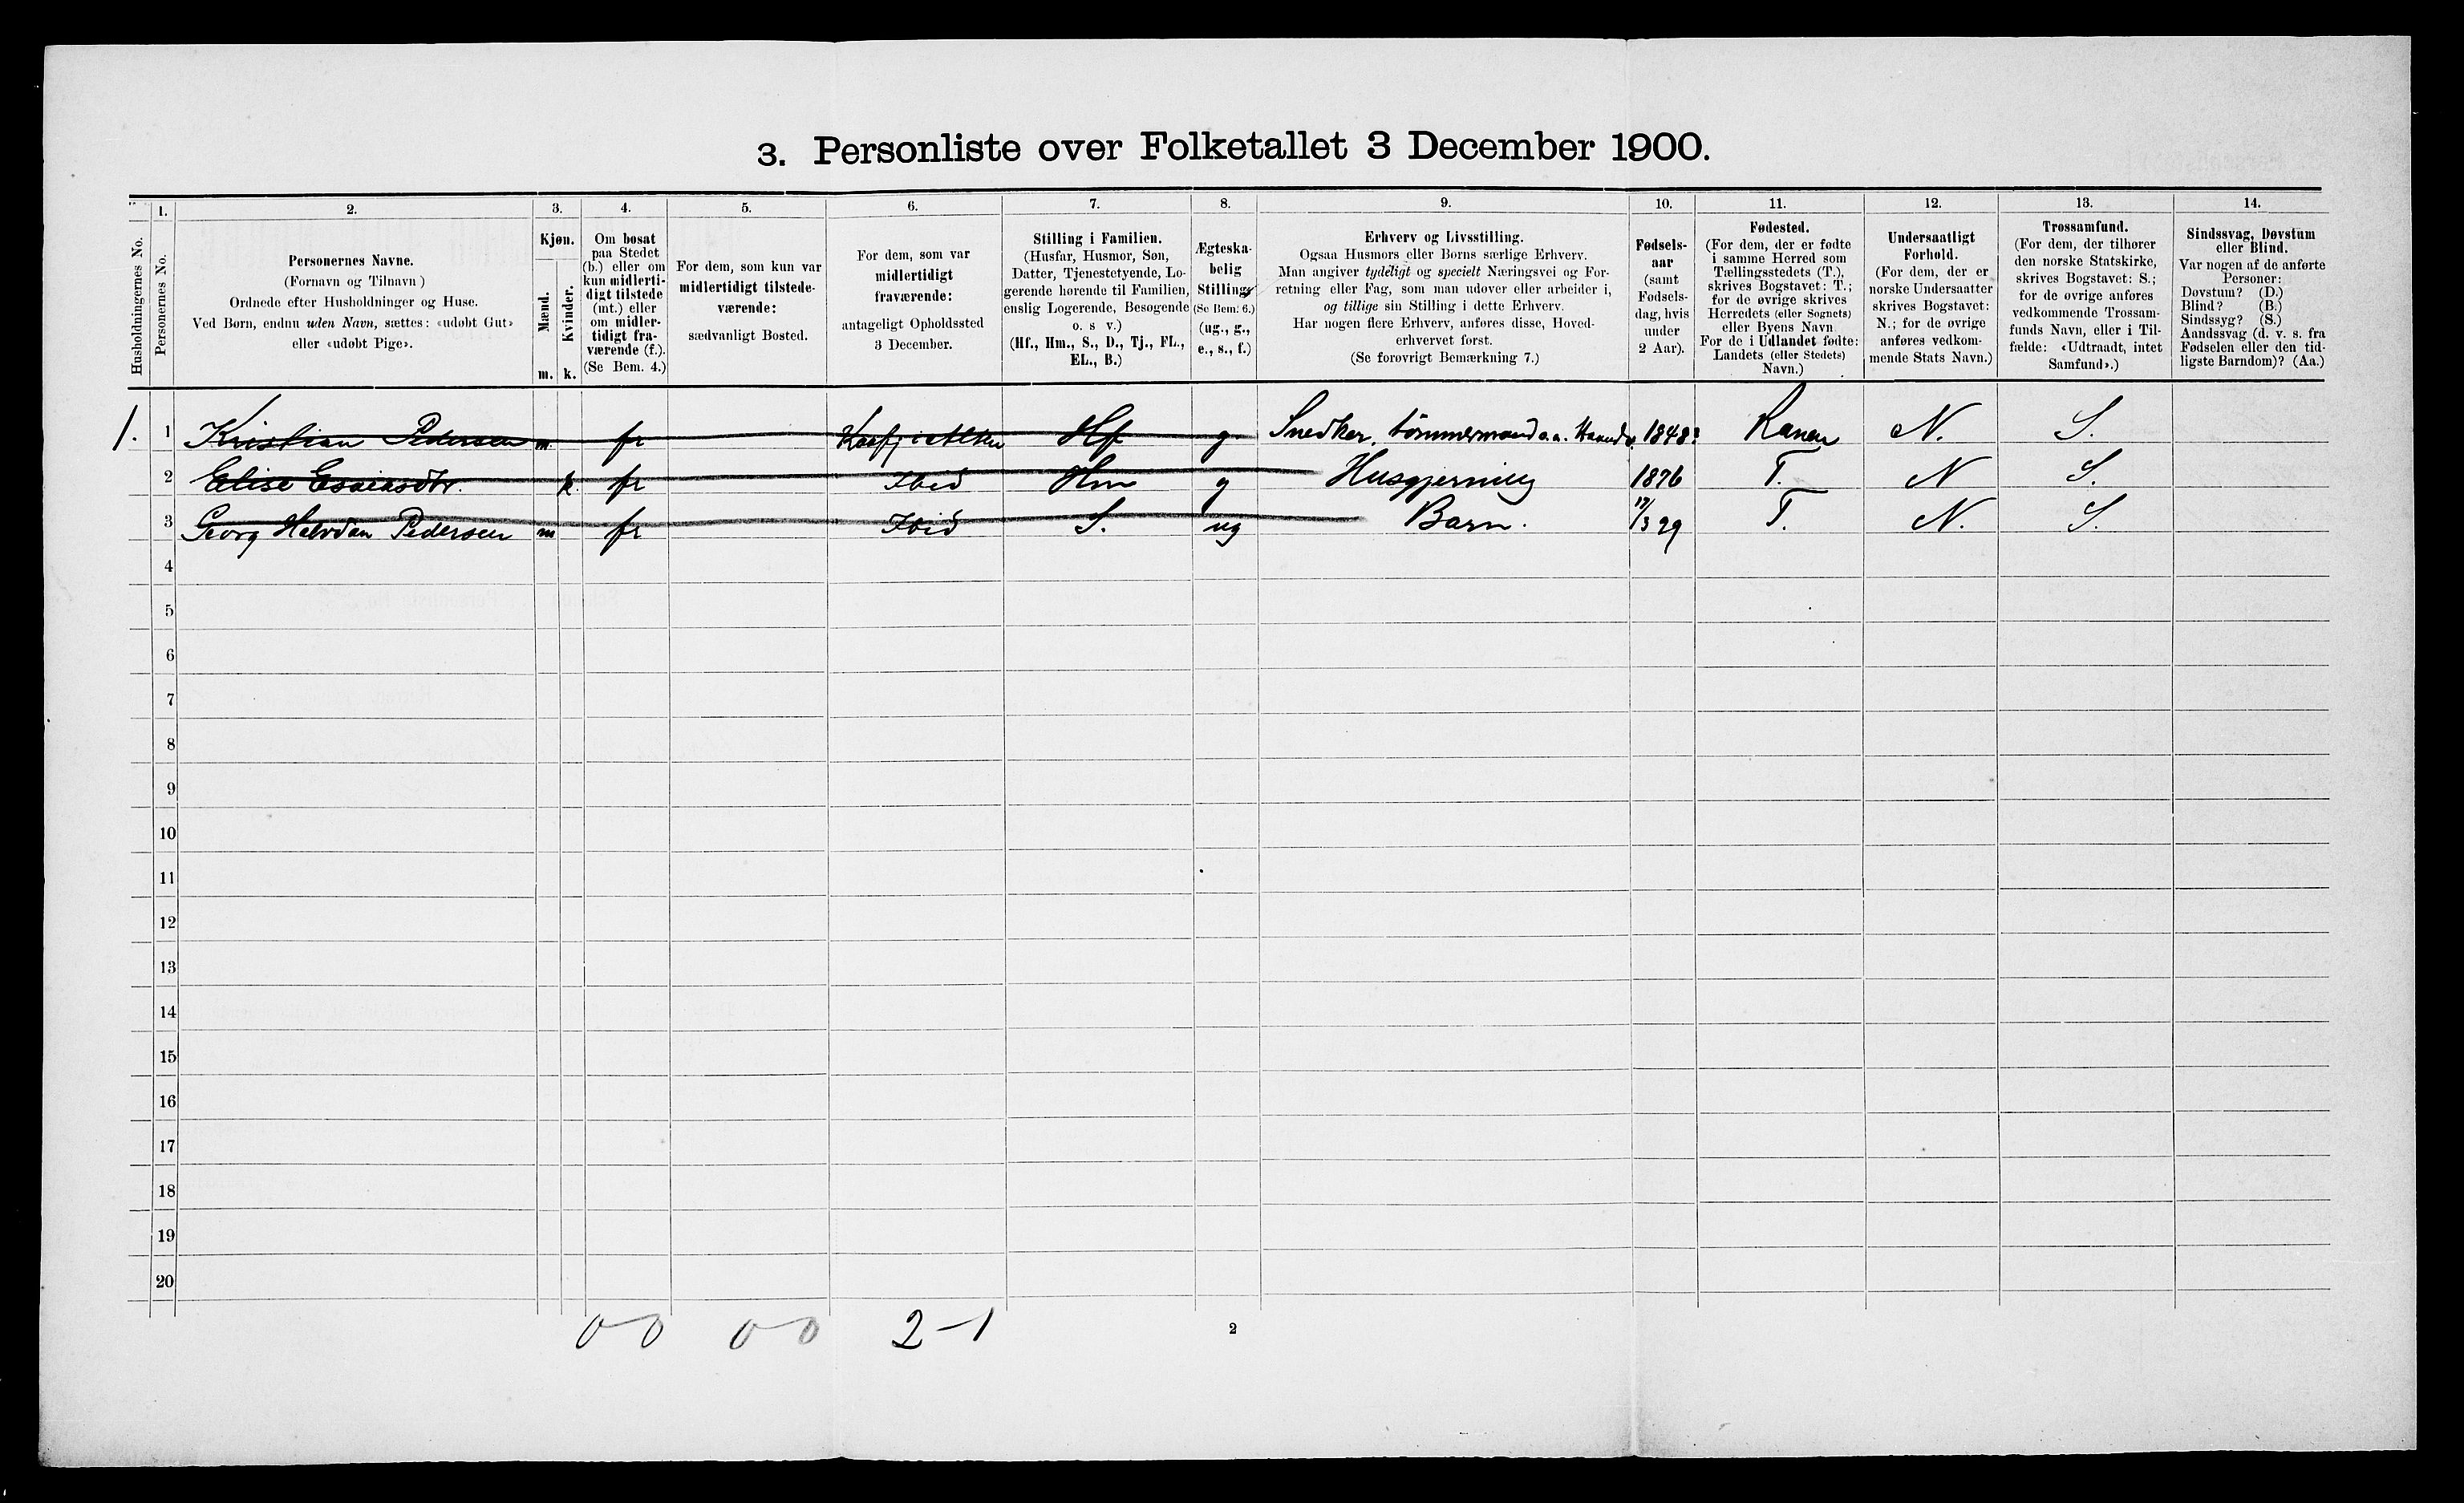 3. Personliste over Folketallet 3 December 1900.
Husholdningernes No.
1.
Personernes No.
2.
Personernes Navne.
(Fornavn og Tilnavn)
Ordnede efter Husholdninger og Huse.
Ved Børn, endnu uden Navn, sættes: «udøbt Gut»
eller «udøbt Pige».
3.
Kjøn.
Mænd.
m.
Kvinder.
k.
4.
Om bosat
paa Stedet
(b.) eller om
kun midlerti-
digt tilstede
(mt.) eller
om midler-
tidigt fra-
værende (f.).
(Se Bem. 4.)
5.
For dem, som kun var
midlertidigt tilstede-
værende:
sædvanligt Bosted.
6.
For dem, som var
midlertidigt
fraværende:
antageligt Opholdssted
3 December.
7.
Stilling i Familien.
(Husfar, Husmor, Søn,
Datter, Tjenestetyende, Lo-
gerende hørende til Familien,
enslig Logerende, Besøgende
o. s v.)
(Hf., Hm., S., D., Tj., FL.,
EL., B.)
8.
Ægteska-
belig
Stilling.
(Se Bem. 6.)
(ug., g.,
e., s., f.)
9.
Erhverv og Livsstilling.
Ogsaa Husmors eller Børns særlige Erhverv.
Man angiver tydeligt og specielt Næringsvei og For-
retning eller Fag, som man udøver eller arbeider i,
og tillige sin Stilling i dette Erhverv.
Har nogen flere Erhverv, anføres disse, Hoved-
erhvervet først.
(Se forøvrigt Bemærkning 7.)
10.
Fødsels-
aar
(samt
Fødsels-
dag, hvis
under
2 Aar).
11.
Fødested.
(For dem, der er fødte
i samme Herred som
Tællingsstedets (T.),
skrives Bogstavet: T.;
for de øvrige skrives
Herredets (eller Sognets)
eller Byens Navn
For de i Udlandet fødte:
Landets (eller Stedets)
Navn.)
12.
Undersaatligt
Forhold.
(For dem, der er
norske Undersaatter
skrives Bogstavet:
N.; for de øvrige
anføres vedkom-
mende Stats Navn.)
13.
Trossamfund.
(For dem, der tilhører
den norske Statskirke,
skrives Bogstavet: S.;
for de øvrige anføres
vedkommende Trossam-
funds Navn, eller i Til-
fælde: «Udtraadt, intet
Samfund».)
14.
Sindssvag, Døvstum
eller Blind.
Var nogen af de anførte
Personer:
Døvstum? (D.)
Blind? (B.)
Sindssyg? (S.)
Aandssvag (d. v. s. fra
Fødselen eller den tid-
ligste Barndom)? (Aa.)
1. 1 Kristian Pedersen m. fr Hf g Snedker, tømmermand o.a. 1848? Ranen N. S.
2 Elise Esaiasdtr. k. fr Ibid Hm g Husgjerning 1876 T. N S.
3 Georg Halvdan Pedersen m fr Ibid S. ug Barn. 17/3 99 T. N. S.
4
5
6
7
8
9
10
11
12
13
14
15
16
17
18
19
20
0 0 0 0 2-1
2